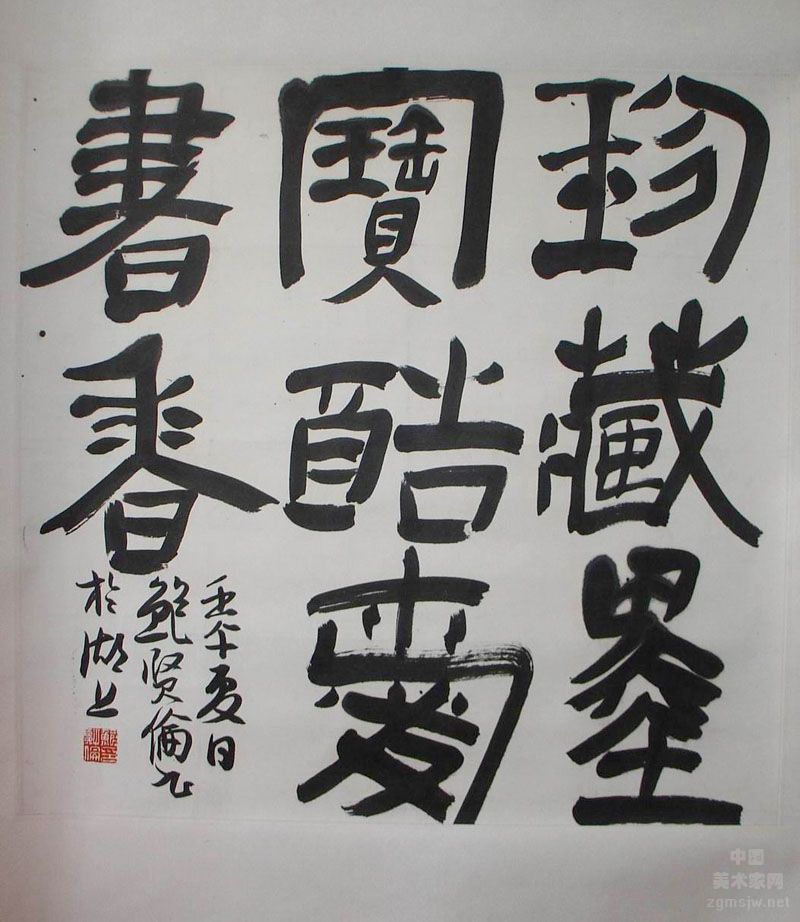 珍藏墨
寶酷愛
書香
壬午夏日
鮑賢倫
於湖上
中国
美术家网
zgmsjw.net